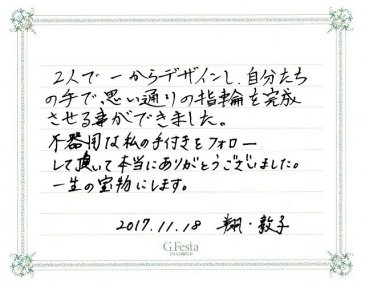 2人で一からデザインし、自分たち
の手で、思い通りの指輪を完成
させる事ができました。
不器用な私の手付きをフォロー
して頂いて本当にありがとうございました。
一生の宝物にします。
2017.11.18 翔・敦子
G.Festa
DIAMOND